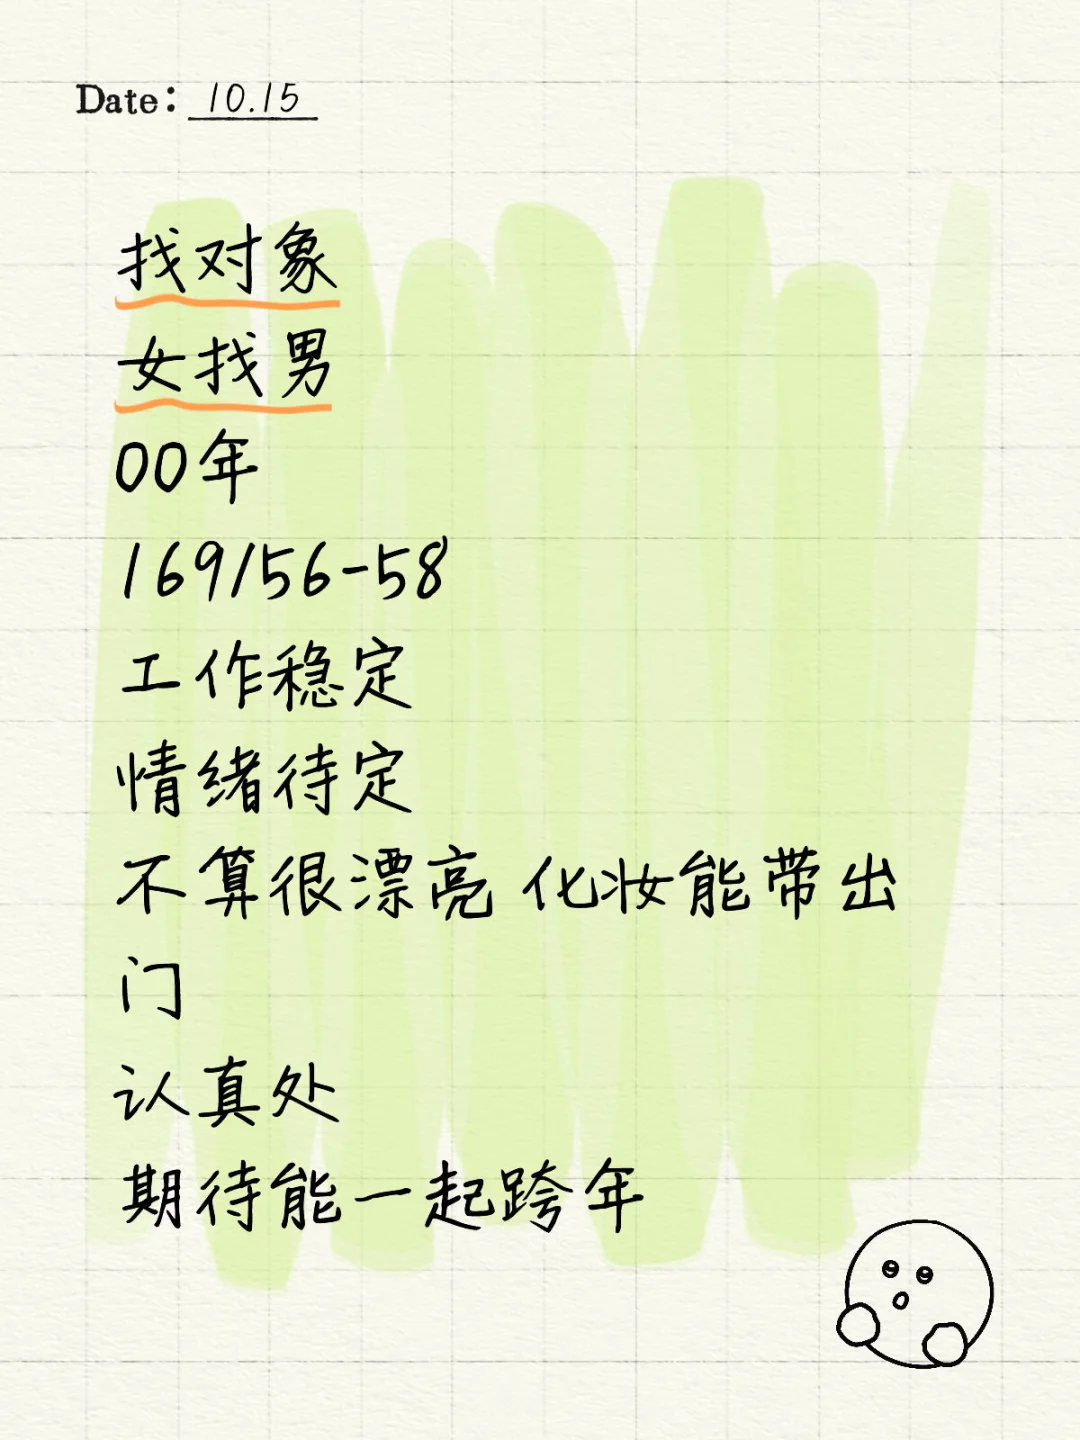 Date: 10.15
找对象
女找男
00年
169/56-58
工作稳定
情绪待定
不算很漂亮 化妆能带出
门
认真处
期待能一起跨年